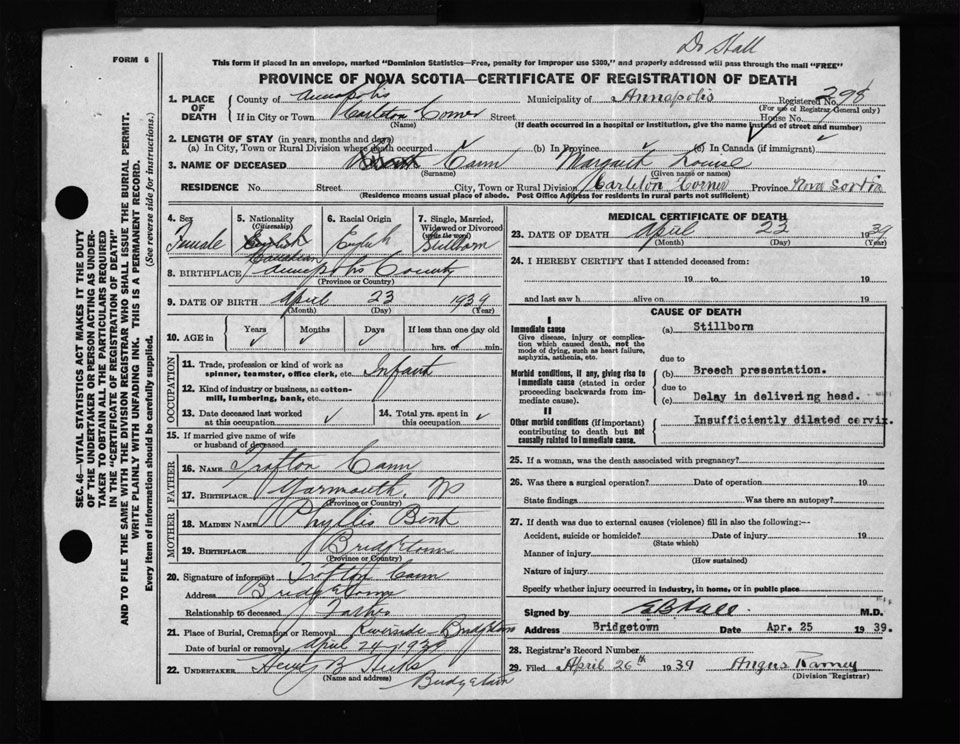 Dr Hall
FORM 6
This form if placed in an envelope, marked "Dominion Statistics—Free, penalty for improper use $300," and properly addressed will pass through the mail "FREE"
PROVINCE OF NOVA SCOTIA—CERTIFICATE OF REGISTRATION OF DEATH
SEC. 46—VITAL STATISTICS ACT MAKES IT THE DUTY
OF THE UNDERTAKER OR PERSON ACTING AS UNDER-
TAKER TO OBTAIN ALL THE PARTICULARS REQUIRED
IN THE "CERTIFICATE OF REGISTRATION OF DEATH"
AND TO FILE THE SAME WITH THE DIVISION REGISTRAR WHO SHALL ISSUE THE BURIAL PERMIT.
WRITE PLAINLY WITH UNFADING INK. THIS IS A PERMANENT RECORD.
Every item of information should be carefully supplied. (See reverse side for instructions.)
1. PLACE OF DEATH
County of Annapolis Municipality of Annapolis Registered No. 298
(For use of Registrar General only)
If in City or Town Carleton Corner Street House No.
(Name) (If death occurred in a hospital or institution, give the name instead of street and number)
2. LENGTH OF STAY (in years, months and days)
(a) In City, Town or Rural Division where death occurred (b) In Province (c) In Canada (if immigrant)
3. NAME OF DECEASED Cann Margaret Louise
(Surname) (Given name or names)
RESIDENCE No. Street City, Town or Rural Division Carleton Corner Province Nova Scotia
(Residence means usual place of abode. Post Office Address for residents in rural parts not sufficient)
4. Sex
Female
5. Nationality
(Citizenship)
English
Canadian
6. Racial Origin
English
7. Single, Married,
Widowed or Divorced
(write the word)
Stillborn
8. BIRTHPLACE Annapolis County
(Province or Country)
9. DATE OF BIRTH April 23 1939
(Month) (Day) (Year)
10. AGE in Years Months Days If less than one day old
hrs. or min.
OCCUPATION
11. Trade, profession or kind of work as
spinner, teamster, office clerk, etc. Infant
12. Kind of industry or business, as cotton-
mill, lumbering, bank, etc.
13. Date deceased last worked
at this occupation
14. Total yrs. spent in
this occupation
15. If married give name of wife
or husband of deceased
FATHER
16. NAME Trafton Cann
17. BIRTHPLACE Yarmouth, NS
(Province or Country)
MOTHER
18. MAIDEN NAME Phyllis Bent
19. BIRTHPLACE Bridgetown
(Province or Country)
20. Signature of informant Trafton Cann
Address Bridgetown
Relationship to deceased Father
21. Place of Burial, Cremation or Removal Riverside - Bridgetown
Date of burial or removal April 24 - 1939
22. UNDERTAKER Henry B Hicks
(Name and address) Bridgetown
MEDICAL CERTIFICATE OF DEATH
23. DATE OF DEATH April 23 1939
(Month) (Day) (Year)
24. I HEREBY CERTIFY that I attended deceased from:
19 to 19
and last saw h alive on 19
CAUSE OF DEATH
I
Immediate cause
Give disease, injury or complica-
tion which caused death, not the
mode of dying, such as heart failure,
asphyxia, asthenia, etc.
(a) Stillborn
due to
Morbid conditions, if any, giving rise to
immediate cause (stated in order
proceeding backwards from im-
mediate cause).
(b) Breech presentation.
due to
(c) Delay in delivering head.
II
Other morbid conditions (if important)
contributing to death but not
causally related to immediate cause.
Insufficiently dilated cervix.
25. If a woman, was the death associated with pregnancy?
26. Was there a surgical operation? Date of operation 19
State findings Was there an autopsy?
27. If death was due to external causes (violence) fill in also the following:—
Accident, suicide or homicide? Date of injury 19
(State which)
Manner of injury
(How sustained)
Nature of injury
Specify whether injury occurred in industry, in home, or in public place
Signed by E B Hall M.D.
Address Bridgetown Date Apr. 25 1939.
28. Registrar's Record Number
29. Filed April 26th 1939 Angus Ramey
(Division Registrar)